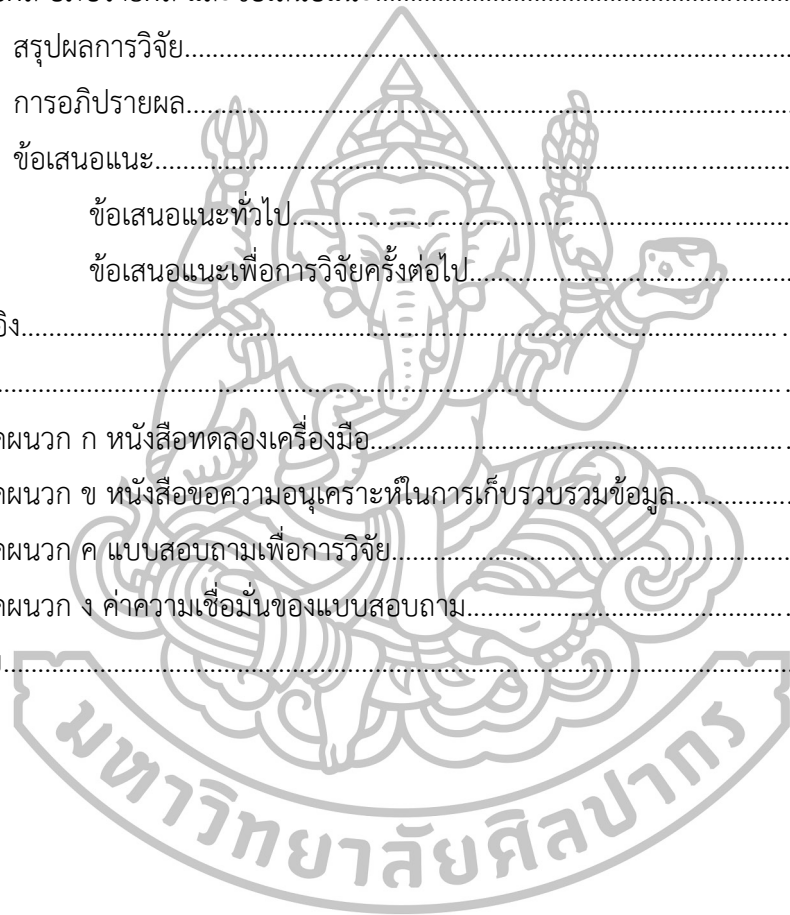 สรุปผลการวิจัย
การอภิปรายผล
ข้อเสนอแนะ
ข้อเสนอแนะทั่วไป
ข้อเสนอแนะเพื่อการวิจัยครั้งต่อไป
ผนวก ก หนังสือทดลองเครื่องมือ
ผนวก ข หนังสือขอความอนุเคราะห์ในการเก็บรวบรวมข้อมูล
ผนวก ค แบบสอบถามเพื่อการวิจัย
ผนวก ง ค่าความเชื่อมั่นของแบบสอบถาม
มหาวิทยาลัยศิลปากร